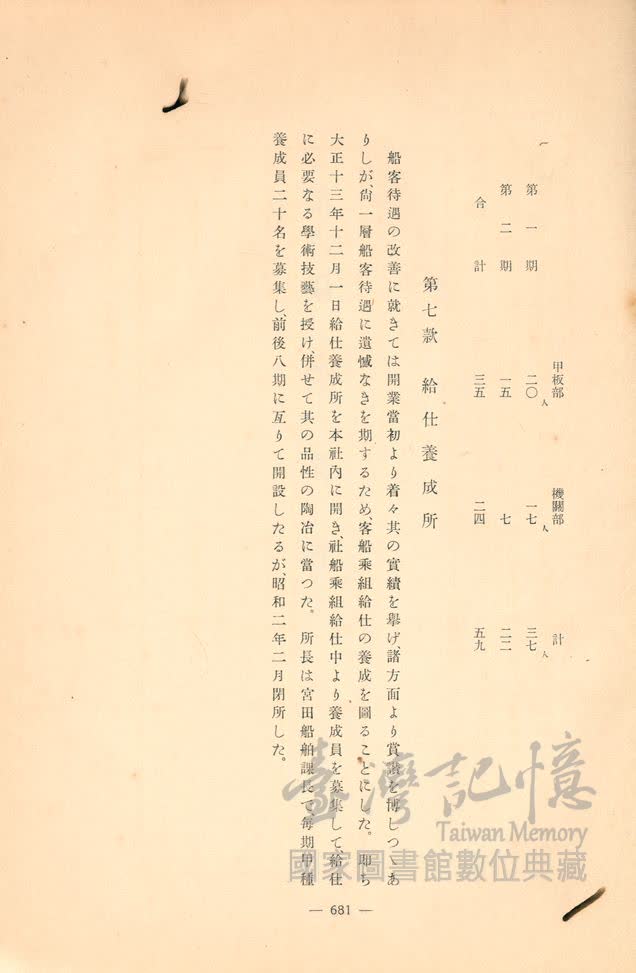 甲板部　機關部　計
第一期　二〇人　一七人　三七人
第二期　一五　七　二二
合計　三五　二四　五九
第七款　給仕養成所
船客待遇の改善に就きては開業當初より着々其の實績を擧げ、諸方面より賞讃を博しつゝあ
りしが、尙一層船客待遇に遺憾なきを期するため、客船乘組給仕の養成を圖ることにした。卽ち
大正十三年十二月一日給仕養成所を本社內に開き、社船乘組給仕中より養成員を募集して、給仕
に必要なる學術技藝を授け、併せて其の品性の陶冶に當つた。所長は宮田船舶課長で每期甲種
養成員二十名を募集し、前後八期に亙りて開設したるが、昭和二年二月閉所した。
臺灣記憶
Taiwan Memory
國家圖書館數位典藏
— 681 —